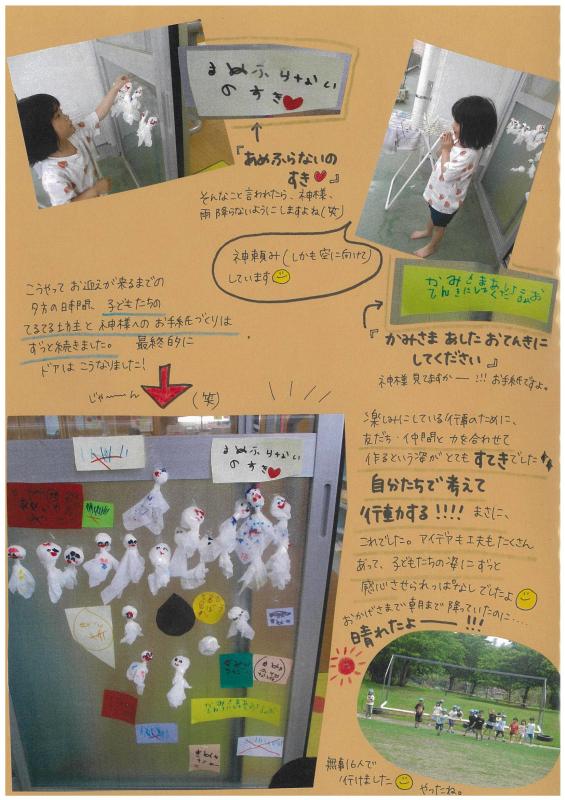 まめふらない
のすき❤
『あめふらないの
すき❤』
そんなこと言われたら、神様、
雨降らないようにしますよね(笑)
神頼み(しかも空に向けて)
しています
こうやってお迎えが来るまでの
夕方の時間、子どもたちの
てるてる坊主と神様へのお手紙づくりは
ずっと続きました。 最終的に
ドアはこうなりました!
じゃーん
(笑)
『かみさま あした おてんきに
してください』
神様見てますかー!!! お手紙ですよ。
まめふらない
のすき❤
楽しみにしている行事のために、
友だち・仲間と力を合わせて
作るという姿がとてもすてきでした
自分たちで考えて
行動する!!!! まさに、
これでした。アイデアも工夫もたくさん
あって、子どもたちの姿にずっと
感心させられっぱなしでしたよ
おかげさまで朝まで降っていたのに‥‥
晴れたよー!!!
無事16人で
行けました
やったね。